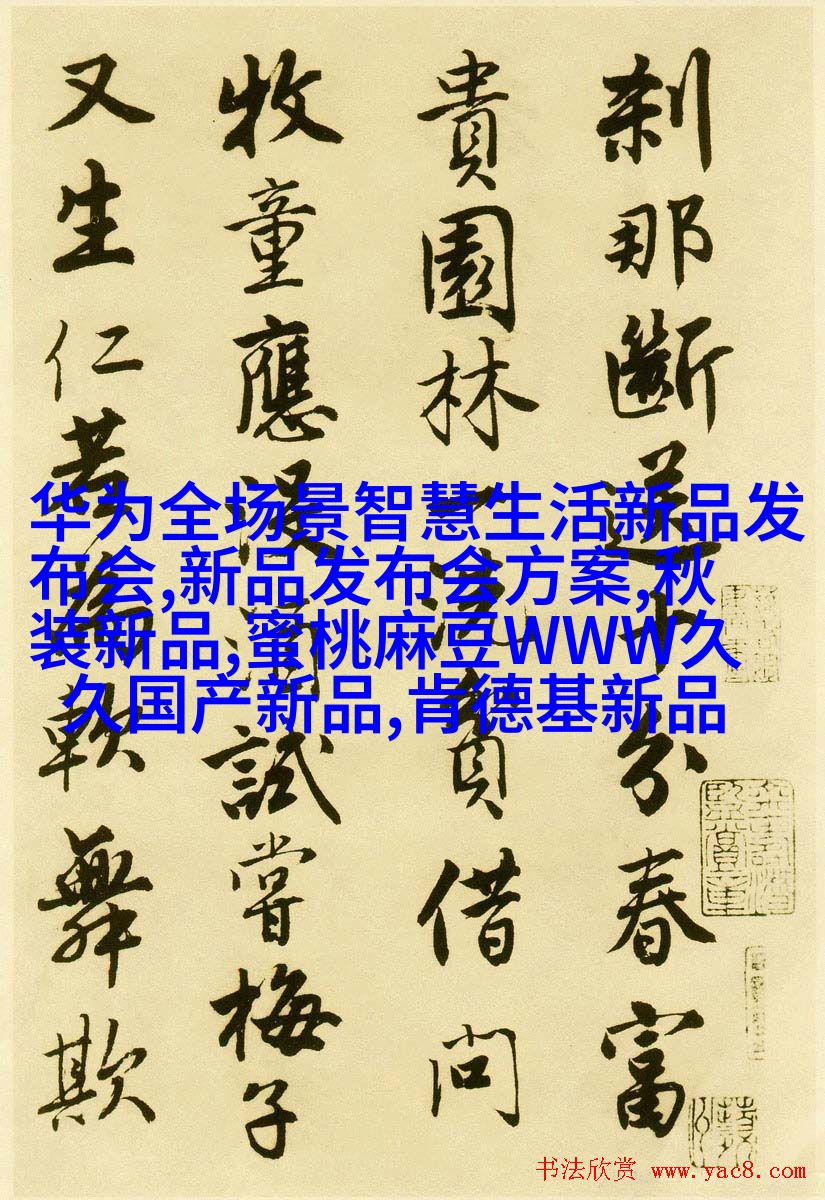 刹那斷送十分春富
貴園林一洗貧借問
牧童應没酒試嘗梅子
又生仁若為軟舞欺
华为全场景智慧生活新品发
布会,新品发布会方案,秋
装新品,蜜桃麻豆WWW久
久国产新品,肯德基新品
书法欣赏 www.yac8.com